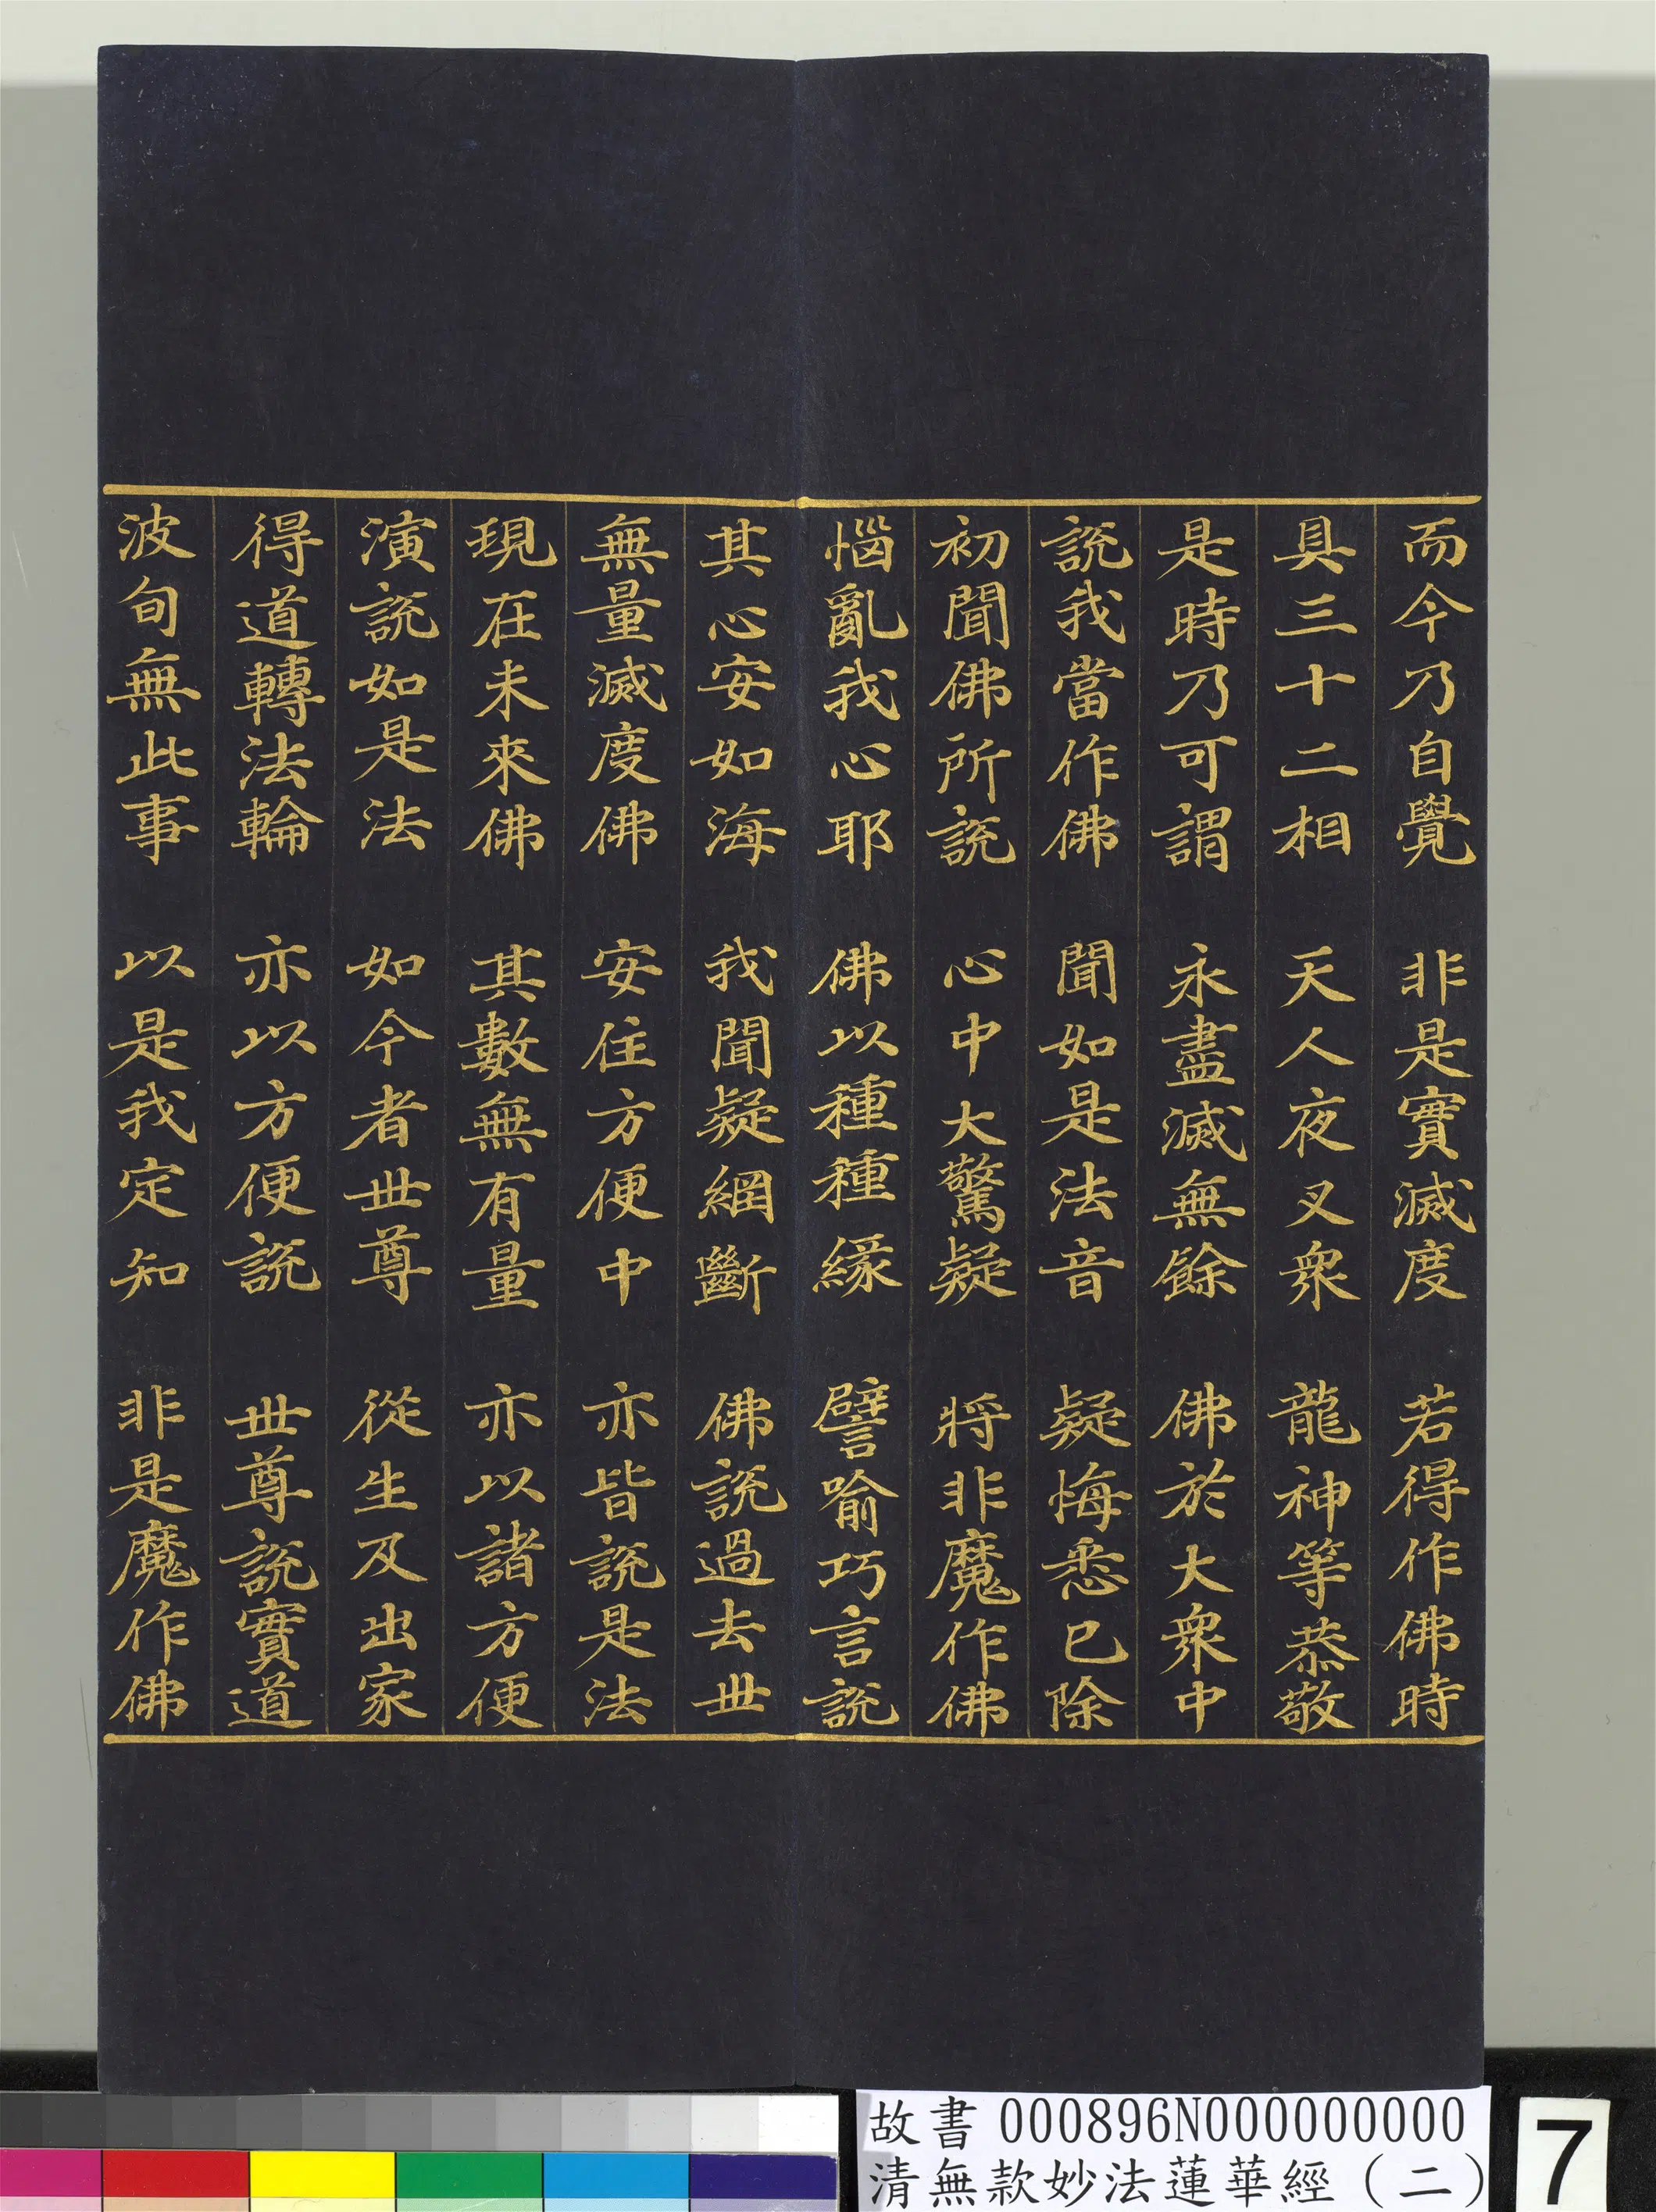 而今乃自覺　非是實滅度　若得作佛時
具三十二相　天人夜叉衆　龍神等恭敬
是時乃可謂　永盡滅無餘　佛於大衆中
說我當作佛　聞如是法音　疑悔悉已除
初聞佛所說　心中大驚疑　將非魔作佛
惱亂我心耶　佛以種種緣　譬喻巧言說
其心安如海　我聞疑網斷　佛說過去世
無量滅度佛　安住方便中　亦皆說是法
現在未來佛　其數無有量　亦以諸方便
演說如是法　如今者世尊　從生及出家
得道轉法輪　亦以方便說　世尊說實道
波旬無此事　以是我定知　非是魔作佛
故書 000896N000000000
清無款妙法蓮華經（二）
7